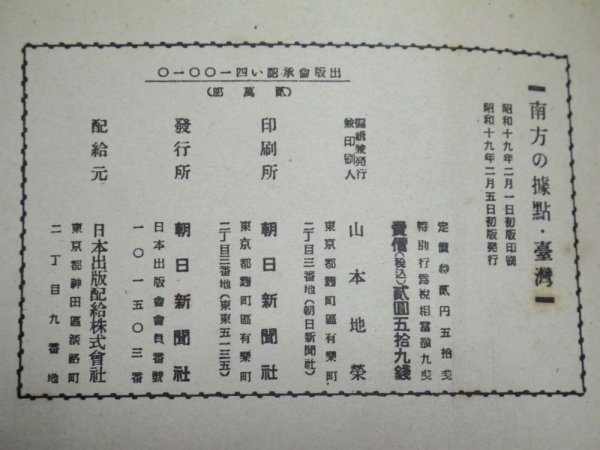 南方の據點・臺灣
昭和十九年二月一日初版印刷
昭和十九年二月五日初版發行
定價金貳円五拾錢
特別行爲稅相當額九錢
賣價(稅込)貳圓五拾九錢
編輯兼發行
兼印刷人
山本地榮
東京都麴町區有樂町
二丁目三番地(朝日新聞社)
印刷所
朝日新聞社
東京都麴町區有樂町
二丁目三番地(東東五一三五)
發行所
朝日新聞社
日本出版會會員番號
一〇一五〇三番
配給元
日本出版配給株式會社
東京都神田區淡路町
二丁目九番地
出版會承認い四一〇〇一〇
(貳萬部)